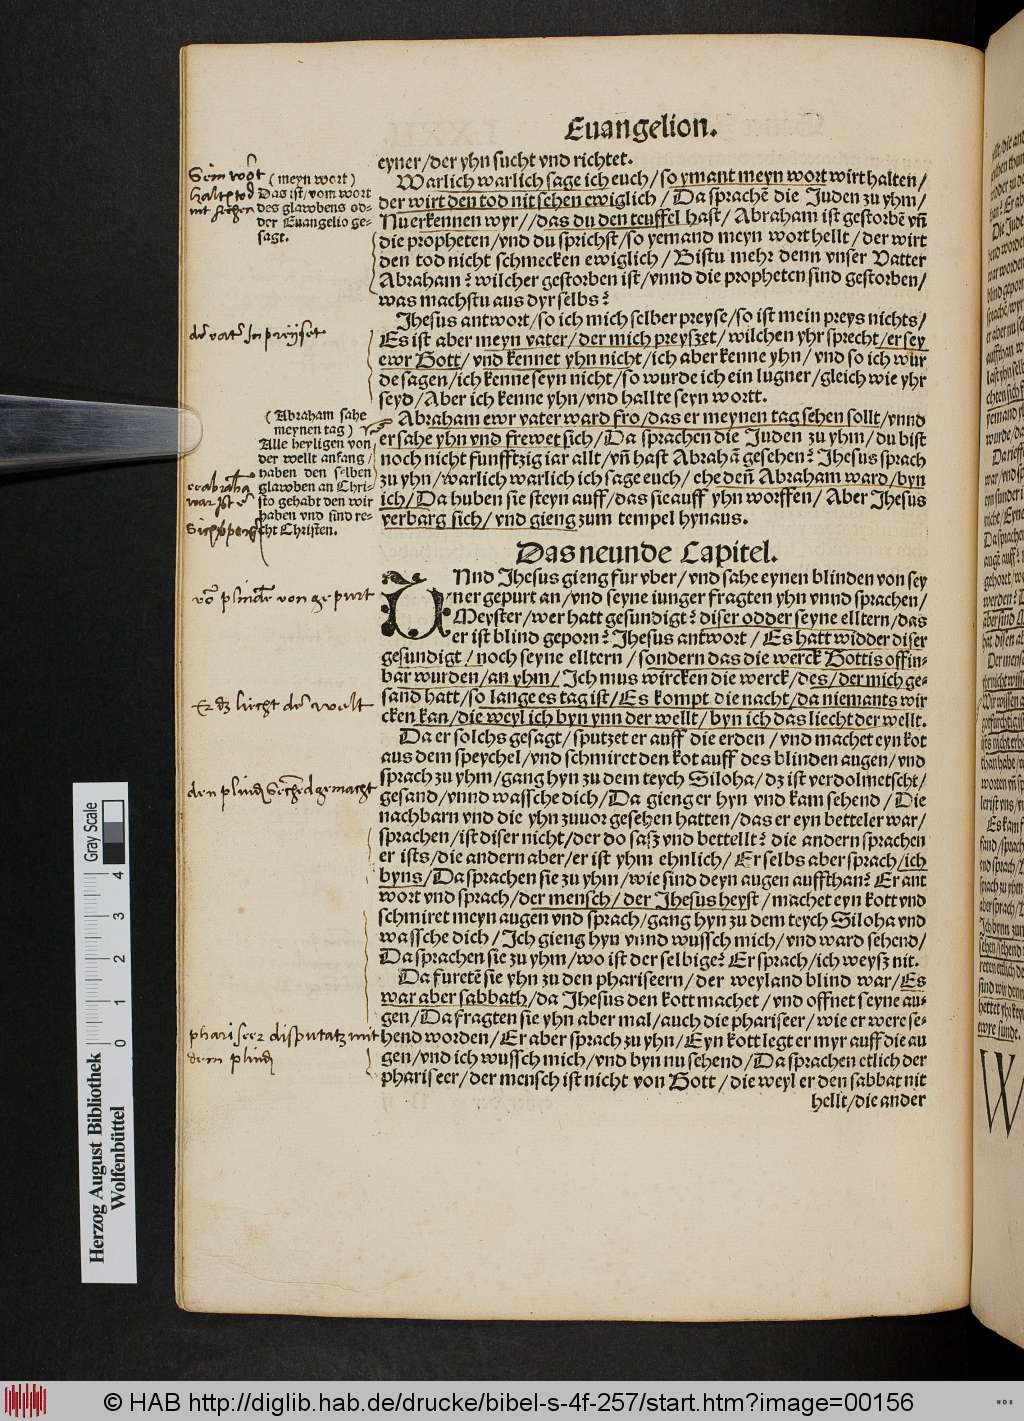 Euangelion.
eyner/der yhn sucht vnd richtet.
Warlich warlich sage ich euch/so ymant meyn wort wirt halten/
der wirt den tod nit sehen ewiglich/Da sprachē die Juden zu yhm/
Nu erkennen wyr//das du den teuffel hast/Abraham ist gestorbē vn̄
die propheten/vnd du sprichst/so yemand meyn wort hellt/der wirt
den tod nicht schmecken ewiglich/Bistu mehr denn vnser Vatter
Abraham? wilcher gestorben ist/vnnd die propheten sind gestorben/
was machstu aus dyr selbs?
Jhesus antwort/so ich mich selber preyse/so ist mein preys nichts/
Es ist aber meyn vater/der mich preyszet/wilchen yhr sprecht/er sey
ewr Gott/vnd kennet yhn nicht/ich aber kenne yhn/vnd so ich wur
de sagen/ich kenne seyn nicht/so wurde ich ein lugner/gleich wie yhr
seyd/Aber ich kenne yhn/vnd hallte seyn wortt.
Abraham ewr vater ward fro/das er meynen tag sehen sollt/vnnd
er sahe yhn vnd frewet sich/Da sprachen die Juden zu yhm/du bist
noch nicht funfftzig iar allt/vn̄ hast Abrahā gesehen? Jhesus sprach
zu yhn/warlich warlich ich sage euch/ehe den̄ Abraham ward/byn
ich/Da huben sie steyn auff/das sie auff yhn worffen/Aber Jhesus
verbarg sich/vnd gieng zum tempel hynaus.
Sein wort
halten tod
nit sehen
(meyn wort)
Das ist/vom wort
des glawbens od-
der Euangelio ge-
sagt.
der vater In preyset
(Abraham sahe
meynen tag)
Alle heyligen von
der wellt anfang/
haben den selben
glawben an Chri-
sto gehabt den wir
haben vnd sind re-
cht Christen.
Das neunde Capitel.
VNnd Jhesus gieng fur vber/vnd sahe eynen blinden von sey
ner gepurt an/vnd seyne iunger fragten yhn vnnd sprachen/
Meyster/wer hatt gesundigt? diser odder seyne elltern/das
er ist blind geporn? Jhesus antwort/Es hatt widder diser
gesundigt/noch seyne elltern/sondern das die werck Gottis offin-
bar wurden/an yhm/Jch mus wircken die werck/des/der mich ge-
sand hatt/so lange es tag ist/Es kompt die nacht/da niemants wir
cken kan/die weyl ich byn ynn der wellt/byn ich das liecht der wellt.
Da er solchs gesagt/sputzet er auff die erden/vnd machet eyn kot
aus dem speychel/vnd schmiret den kot auff des blinden augen/vnd
sprach zu yhm/gang hyn zu dem teych Siloha/dz ist verdolmetscht/
gesand/vnnd wassche dich/Da gieng er hyn vnd kam sehend/Die
nachbarn vnd die yhn zuuor gesehen hatten/das er eyn betteler war/
sprachen/ist diser nicht/der do sasz vnd bettellt? die andern sprachen
er ists/die andern aber/er ist yhm ehnlich/Er selbs aber sprach/ich
byns/Da sprachen sie zu yhm/wie sind deyn augen auffthan? Er ant
wort vnd sprach/der mensch/der Jhesus heyst/machet eyn kott vnd
schmiret meyn augen vnd sprach/gang hyn zu dem teych Siloha vnd
wassche dich/Jch gieng hyn vnnd wussch mich/vnd ward sehend/
Da sprachen sie zu yhm/wo ist der selbige? Er sprach/ich weysz nit.
Da furetē sie yhn zu den phariseern/der weyland blind war/Es
war aber sabbath/da Jhesus den kott machet/vnd offnet seyne au-
gen/Da fragten sie yhn aber mal/auch die phariseer/wie er were se-
hend worden/Er aber sprach zu yhn/Eyn kott legt er myr auff die au
gen/vnd ich wussch mich/vnd byn nu sehend/Da sprachen etlich der
phariseer/der mensch ist nicht von Gott/die weyl er den sabbat nit
hellt/die ander
von gepurt
liecht der welt
phariseer disputatz mit
dem plind
Herzog August Bibliothek
Wolfenbüttel
Gray Scale
0 1 2 3 4
© HAB http://diglib.hab.de/drucke/bibel-s-4f-257/start.htm?image=00156